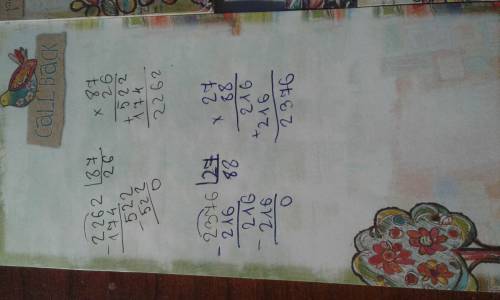 CALL BACK
- 2262 | 87
174 26
522
- 522
0
× 87
26
+ 522
174
2262
- 2376 | 27
216 88
216
- 216
0
× 27
88
216
+ 216
2376